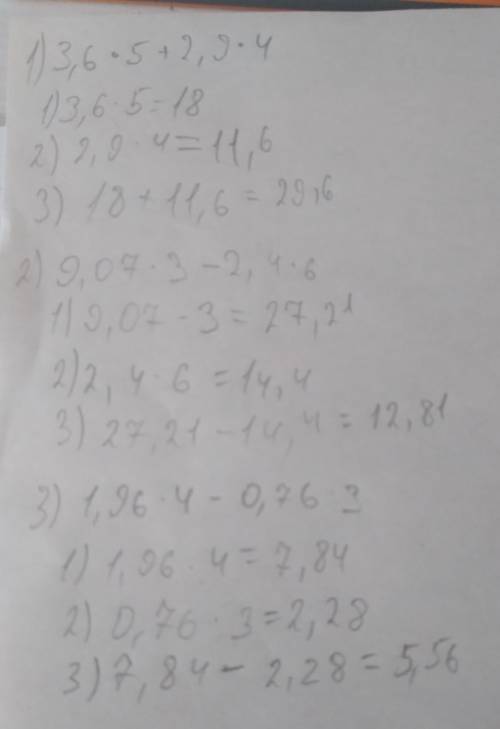 1) 3,6 · 5 + 2,9 · 4
1) 3,6 · 5 = 18
2) 2,9 · 4 = 11,6
3) 18 + 11,6 = 29,6
2) 9,07 · 3 - 2,4 · 6
1) 9,07 · 3 = 27,21
2) 2,4 · 6 = 14,4
3) 27,21 - 14,4 = 12,81
3) 1,96 · 4 - 0,76 · 3
1) 1,96 · 4 = 7,84
2) 0,76 · 3 = 2,28
3) 7,84 - 2,28 = 5,56